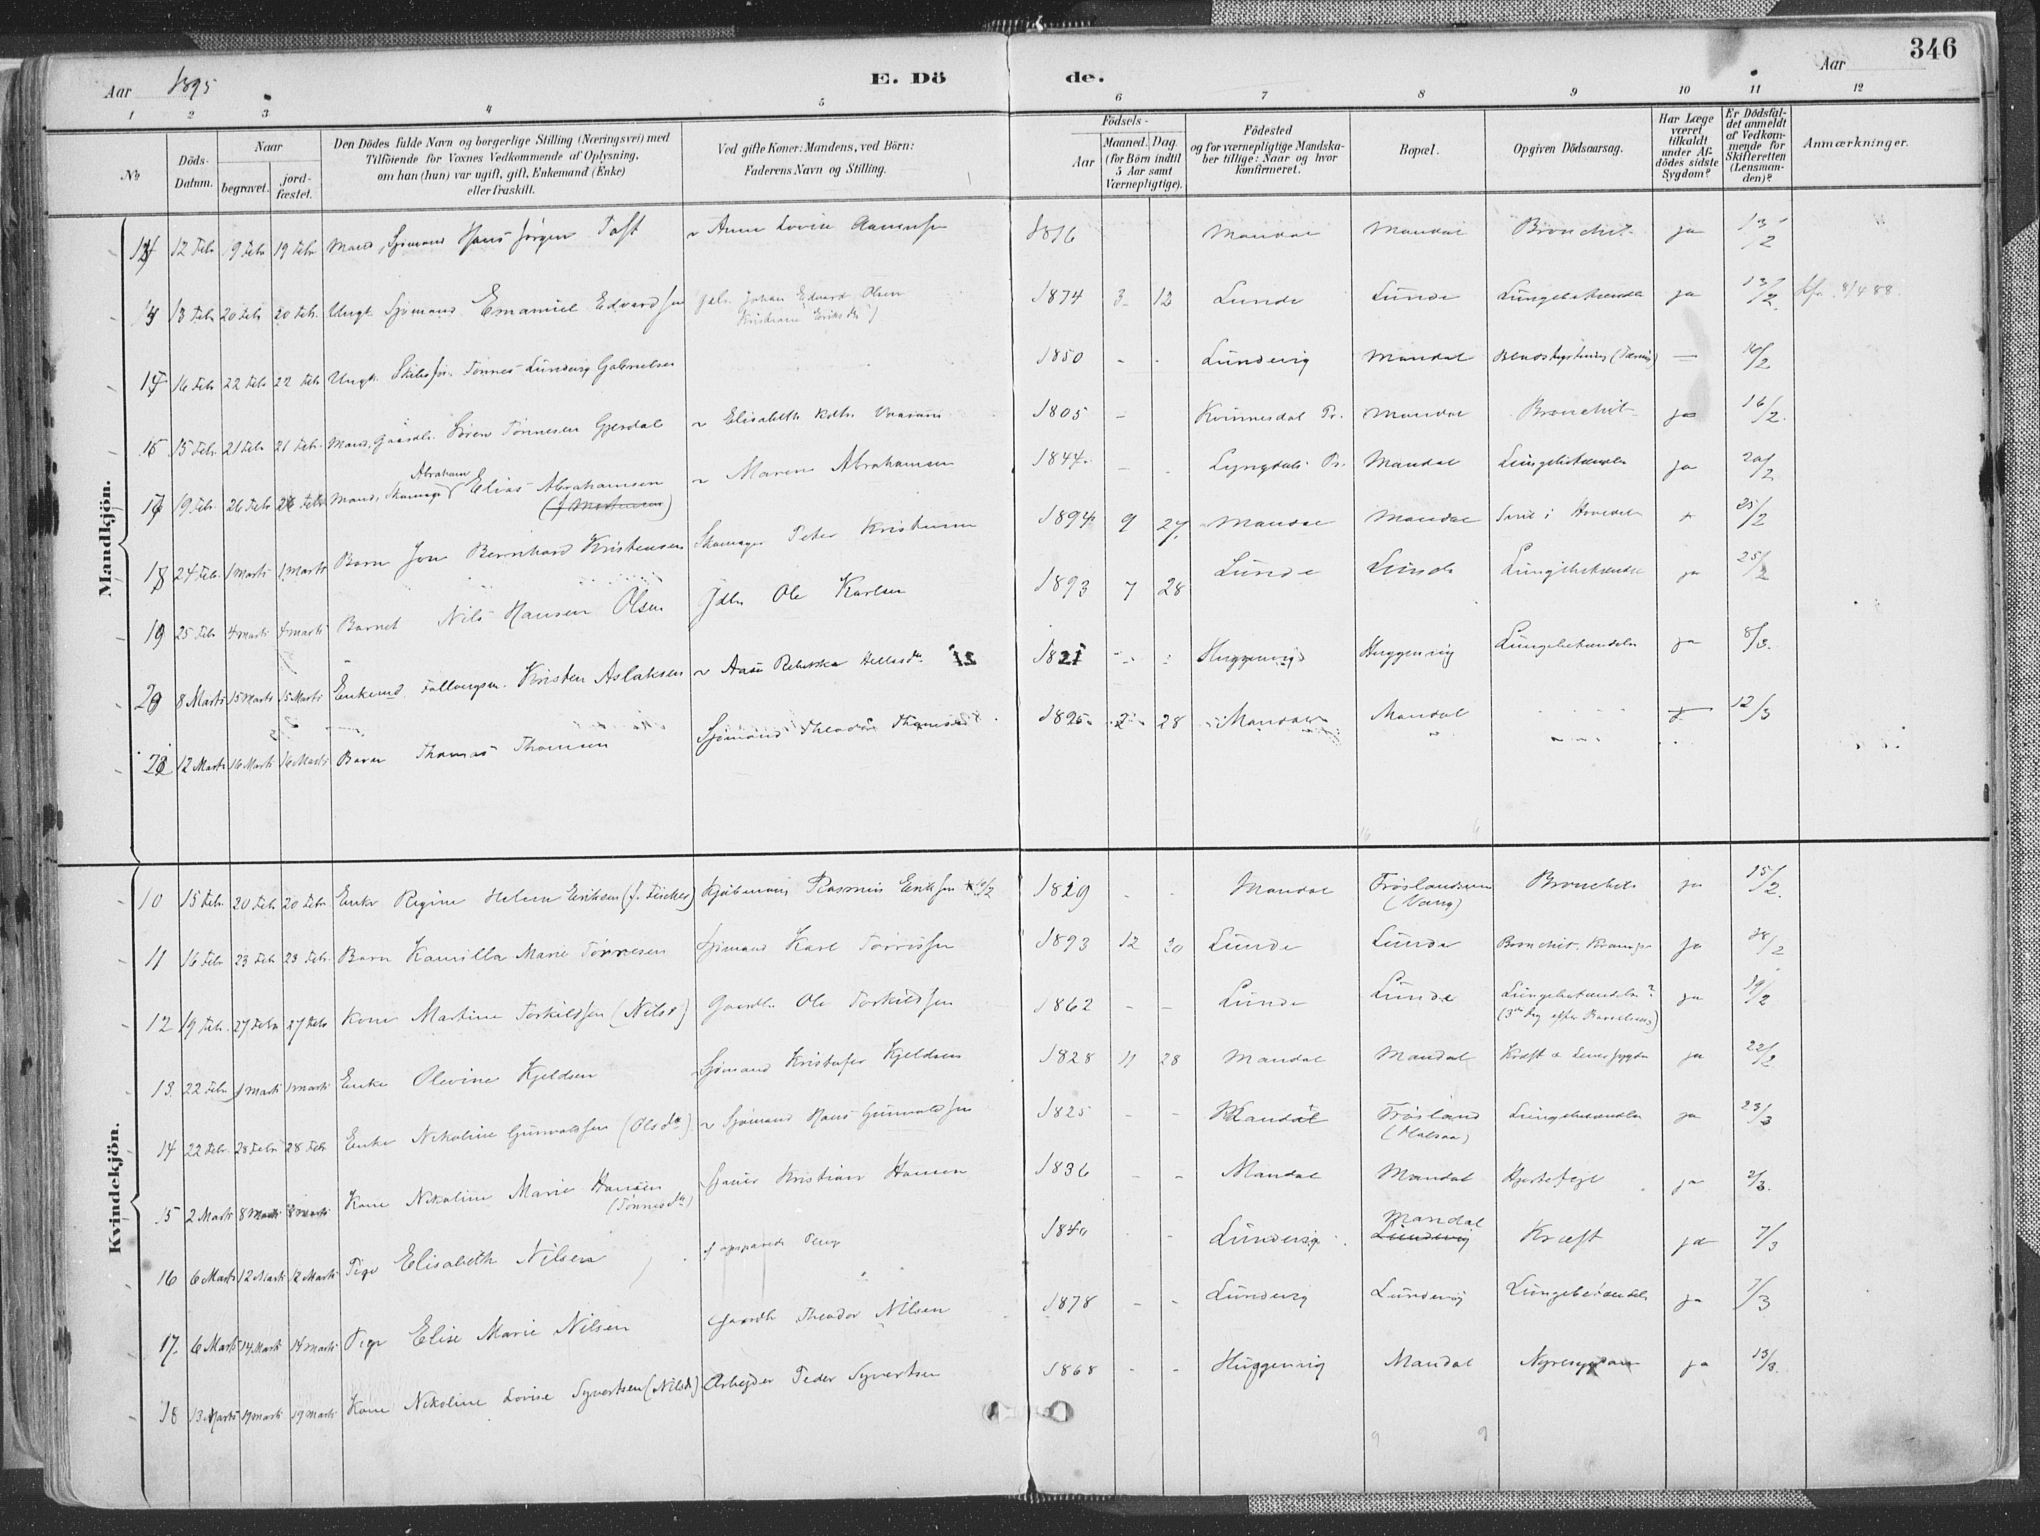 346
Aar 1895
E. Dö de.
Aar
1 2 3 4 5 6 7 8 9 10 11 12
No
Döds-Datum.
Naar
begravet.
jordfæstet.
Den Dödes fulde Navn og borgerlige Stilling (Næringsvei) med
Tilföiende for Voxnes Vedkommende af Oplysning,
om han (hun) var ugift, gift, Enkemand (Enke)
eller fraskilt.
Ved gifte Koner: Mandens, ved Börn:
Faderens Navn og Stilling.
Födsels-
Aar
Maaned. Dag.
(for Börn indtil
5 Aar samt
Værnepligtige).
Födested
og for værnepligtige Mandska-
ber tillige: Naar og hvor
konfirmeret.
Bopæl.
Opgiven Dödsaarsag.
Har Læge
været
tilkaldt
under Af-
dödes sidste
Sygdom?
Er Dödsfal-
det anmeldt
af Vedkom-
mende for
Skifteretten
(Lensman-
den)?
Anmærkninger.
Mandkjön.
12 Febr 19 Febr Mand, Sjømand Hans Jørgen Toft Anne Lovise 1816 Mandal Mandal Bronchit ja 13/2
13 Febr 20 Febr 20 Febr Ungk. Sjømand Emanuel Edvardsen Johan Edvard Olsen 1874 3 12 Lunde Lunde Lungebetændelse ja 13/2 8/4 88.
16 Febr 22 Febr 22 Febr Ungk. Tønnes Lundevig Gabrielsen 1850 - - Lundevig Mandal — 16/2
15 15 Febr 21 Febr 21 Febr Mand, Gaardbr. Søren Tønnesen Gjerdal Elisabeth 1805 - Kvinnesdal Pr. Mandal Bronchit ja 16/2.
19 Febr 26 Febr 26 Febr Mand, Skomager Abraham Elias Abrahamsen Maren Abrahamsen 1844 - - Lyngdal Pr. Mandal Lungebetændelse ja 20/2
18 24 Feb. 1 Marts 1 Marts Barn Jon Bernhard Kristensen Skomager Peter Kristensen 1894 9 27 Mandal Mandal 25/2
19 25 Feb 4 Marts 4 Marts Barnet Nils Hansen Olsen Ole Karlsen 1893 7 28 Lunde Lunde Lungebetændelse ja 25/2
20 8 Marts 15 Marts 15 Marts Enkemd. Kristen Aslaksen Aase Rebekka 1821 Huggenvig Huggenvig Lungebetændelse ja 8/3.
12 Marts 16 Marts 16 Marts Barn Thomas Thomsen Sjømand Theodor Thomsen 1895 2 28 Mandal Mandal 12/3
Kvindekjön.
10 15 Febr. 20 Febr 20 Febr Enke Regine Helene Eriksen (f. Fischer) Kjøbmand Rasmus Eriksen 1829 - - Mandal Frøslandsveien Bronchit ja 15/2.
11 16 Febr 23 Febr 23 Febr. Barn Kamilla Marie Tønnesen Sjømand Karl 1893 12 20 Lunde Lunde Bronchit. Krampe ja 18/2
12 19 Feb. 27 Febr 27 Febr Kone Martine Torkildsen (Nilsd) Gaardbr Ole Torkildsen 1862 - - Lunde Lunde Lungebetændelse? ja 19/2
(3die Dag efter Barselseng)
13. 22 Febr 1 Marts 1 Marts Enke Olevine Kjeldsen Sjømand Kristofer Kjeldsen 1828 11 28 Mandal Mandal Kræft & Leversygdom ja 22/2
14 22 Febr. 28 Febr 28 Febr Enke Nikoline Gunvaldsen (Olsdtr) Sjømand Hans Gunvaldsen 1825 - - Mandal Frøsland (Halsaa) Lungebetændelse ja 23/3
15 2 Marts 8 Marts 8 Marts Kone Nikoline Marie Hansen (Tønnesdtr) Kristian Hansen 1836 - - Mandal Mandal Hjertefeil ja 2/3.
16 6 Marts 12 Marts 12 Marts Pige Elisabeth Nilsen opsparede Penge 1840 - Lundevig Mandal Lundevig Kræft ja 7/3
17. 6 Marts 14 Marts 14 Marts Pige Elise Marie Nilsen Gaardbr Theodor Nilsen 1878 - - Lundevig Lundevig Lungebetændelse ja 7/3
18 13 Marts 19 Marts 19 Marts Kone Nikoline Lovise Syvertsen (Nilsd) Arbejder Peder Syvertsen 1868 - - Huggenvig Mandal Nyresygdom ja 13/3.